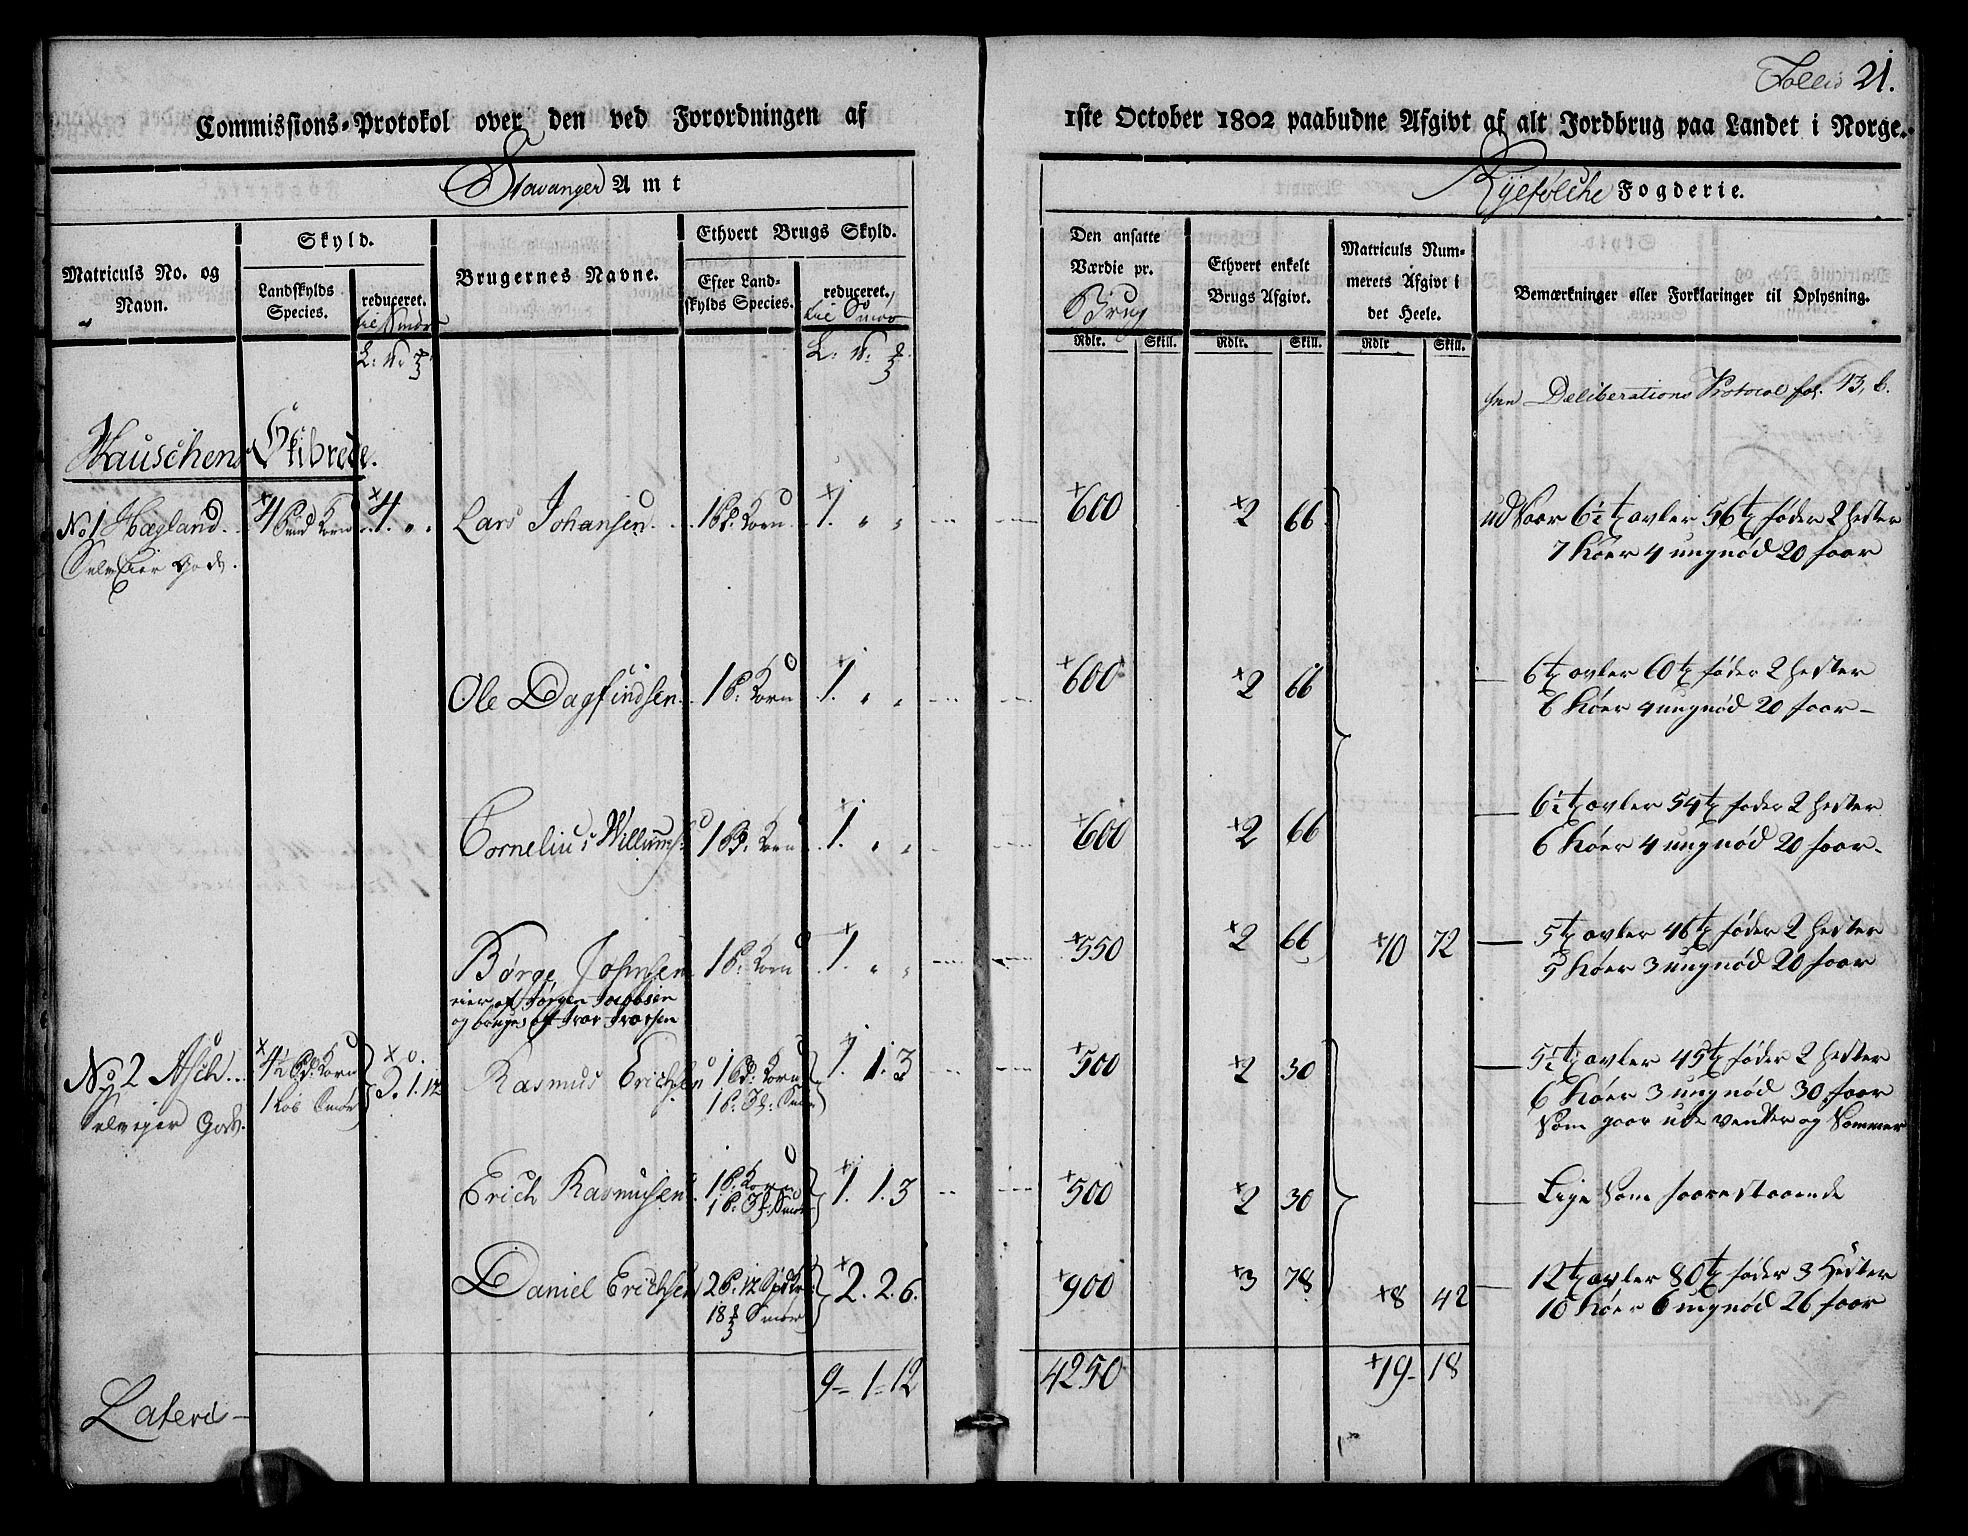 Folio 21.
Commissions-Protokol over den ved Forordningen af 1ste October 1802 paabudne Afgivt af alt Jordbrug paa Landet i Norge.
Stavanger Amt
Ryefølche Fogderie.
Matriculs No. og Navn.
Skyld.
Landskylds Species.
reduceret.
til Smør
Brugernes Navne.
Ethvert Brugs Skyld.
Efter Landskylds Species.
reduceret.
til Smør
Den ansatte Værdie pr.
Brug
Ethvert enkelt Brugs Afgivt.
Matriculs Nummerets Afgivt i det Heele.
Bemærkninger eller Forklaringer til Oplysning.
Rdlr. Skill. Rdlr. Skill. Rdlr Skill.
Deliberations Protocol fol. 13, b.
Hauschens Skibrede.
No 1 Hægland 4 Pund Korn 4. „ „ Lars Johansen 1 P. Korn 1. „ „ 600 2 66 ud Saar 6½ t avler 56 t føder 2 hester
Selv Eier Gods. 7 Køer 4 ungnød 20 faar
Ole Dagfindsen 1 P. Korn 1. „ „ 600 2 66 6 t avler 60 t føder 2 hester
6 Køer 4 ungnød 20 faar
Cornelius Willums: 1 P. Korn 1. „ „ 600 2 66 6½ t avler 54 t føder 2 hester
6 Køer 4 ungnød 20 faar
Børge Johnsen 1 P. Korn 1. „ „ 550 2 66 10 72 5 t avler 46 t føder 2 hester
5 Køer 3 ungnød 20 faar
eier af Jørgen Jacobsen
og bruges af Ivar Ivarsen
No 2 Asch 4½ Pd. Korn 1.12 Rasmus Erichsen 1 Pd. Korn 1. 1. 3 500 2 30 5½ t avler 45 t føder 2 hester
Selveyer Gods. 1 Løb Smør 6 Køer 3 ungnød 30 faar
Som gaar ude venter og Sommer
Erich Rasmusen 1 P. Korn 1. 1. 3 500 2 30 Lige Som foorestaaende
Daniel Erichsen 2 P. 12 1/2 2. 2. 6. 900 3 78 8 42 12 t avler 80 t føder 3 Hester
18 Smør 10 Køer 6 ungnød 26 faar
Lateris 9 - 1 - 12 4250 19 - 18